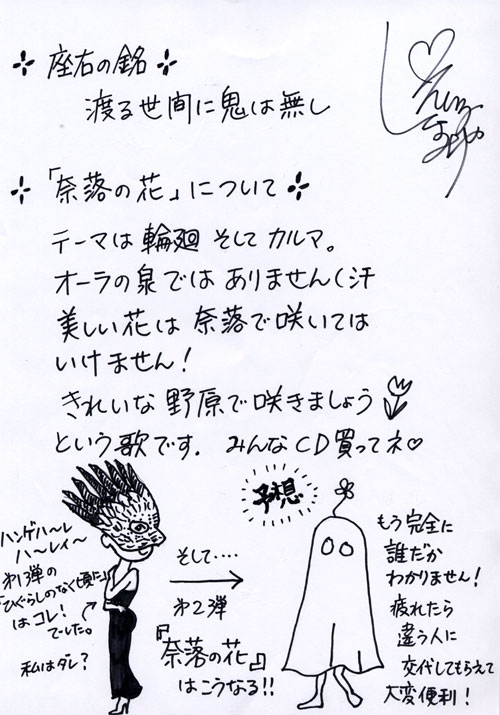 座右の銘
渡る世間に鬼は無し
「奈落の花」について
テーマは輪廻そしてカルマ。
オーラの泉ではありません(汗
美しい花は奈落で咲いては
いけません!
きれいな野原で咲きましょう
という歌です. みんなCD買ってネ♡
ハンゲハ〜レ
ハ〜レィ〜
第1弾の
「ひぐらしのなく頃に」
はコレ!
でした。
私はダレ?
そして‥‥
第2弾
『奈落の花』
はこうなる!!
予想
もう完全に
誰だか
わかりません!
疲れたら
違う人に
交代してもらえて
大変便利!